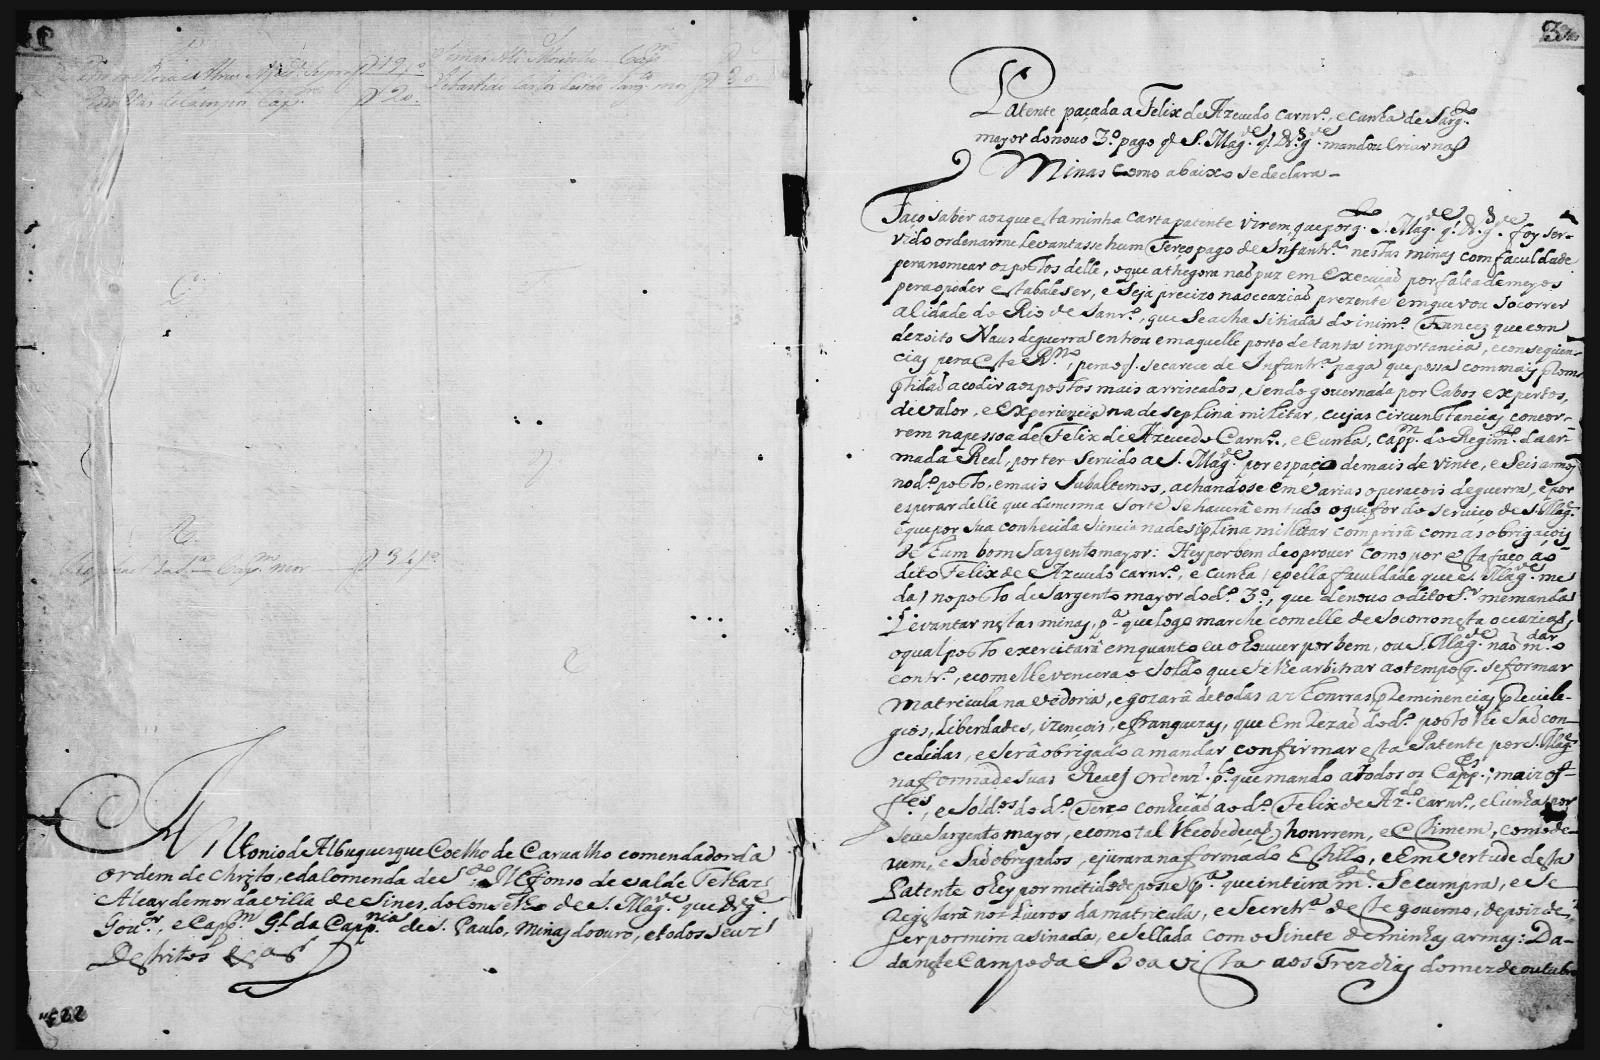 3
Patente paçada a Felix de Azeuedo Carnr.º, e Cunha de Sarg.to
mayor do nouo 3.º pago q̃ S. Mag.de q̃ D.s g.de mandou Criar nas
Minas Como abaixo se declara –
Faço saber aos que esta minha carta patente virem que porq. S. Mag.de q̃ D.s g.de foy ser-
vido ordenarme leuantasse hum Terço pago de Infantr.a nestas minas com faculdade
pera nomear os postos delle, o que athegora naõ puz em execuçaõ por falta de meyos
pera o poder estabaleser, e seja precizo na occaziaõ prezente em que vou socorrer
a Cidade do Rio de Janr.º, que se acha sitiada do inim.º Frances que com
dezoito Naus de guerra entrou em aquelle porto de tanta importancia, e conseque̅n-
cias pera este R.no, pera o q̃ se carece de Infantr.a paga que possa com mais prom-
ptidaõ acodir aos postos mais arriscados, sendo gouernada por Cabos expertos,
de valor, e experiencia na deseplina militar, cujas circunstancias concor-
rem na pessoa de Felix de Azeuedo Carnr.º, e Cunha, Capp.m do Regim.to da ar-
mada Real, por ter seruido a S. Mag.de por espaço de mais de vinte, e seis annos
no d.º posto, e mais subalternos, achandose em varias operaçois de guerra, e por
esperar delle que da mesma sorte se hauerâ em tudo o que for do seruiço de S. Mag.de
e que por sua conhecida siencia na desiplina militar comprirâ com as obrigaçois
de hum bom Sargento mayor: Hey por bem de o prouer como por esta faço ao
dito Felix de Azeuedo Carnr.º, e Cunha / e pella faculdade que S. Mag.de me
da / no posto de Sargento mayor do d.º 3.º, que de nouo o dito S.r me manda
Leuantar nestas minas, p.a que logo marche com elle de socorro nesta occaziaõ,
o qual posto exercitarâ em quanto eu o houuer por bem, ou S. Mag.de naõ m.dar o
contr.º, e com elle vencera o soldo que se lhe arbitrar ao tempo q. se formar
matricula na vedoria, e gozarâ de todas as honrras, preminencias, preuile-
gios, liberdades, izençois, e franquezas, que em rezaõ do d.º posto lhe saõ con-
cedidas, e serâ obrigado a mandar confirmar esta Patente por S. Mag.de
na forma de suas Reaes orden.s p.lo que mando a todos os Capp.es, mais of-
f.es, e sold.os do d.º Terço conheçaõ ao d.º Felix de Az.do Carnr.º, e Cunha por
seu Sargento mayor, e como tal lhe obedeçaõ, honrrem, e estimem, como de-
uem, e saõ obrigados, e jurara na forma do estillo, e em vertude desta
Patente o hey por metido de posse p.a que inteiram.te se cumpra, e se
registarâ nos liuros da matricula, e secretr.a deste gouerno, depois de
ser por mim asinada, e sellada com o sinete de minhas armas: Da-
da neste Campo da Boa vista aos tres dias do mez de outubro
Antonio de Albuquerque Coelho de Carualho comendador da
ordem de Christo, e da Comenda de S.to Illefonso de val de Telhas
Alcay de mor da villa de Sines, do Conselho de S. Mag.de que D.s g.de
Gou.or, e Capp.m G.l da Capp.nia de S. Paulo, Minas do ouro, e todos seus
Destritos &.as